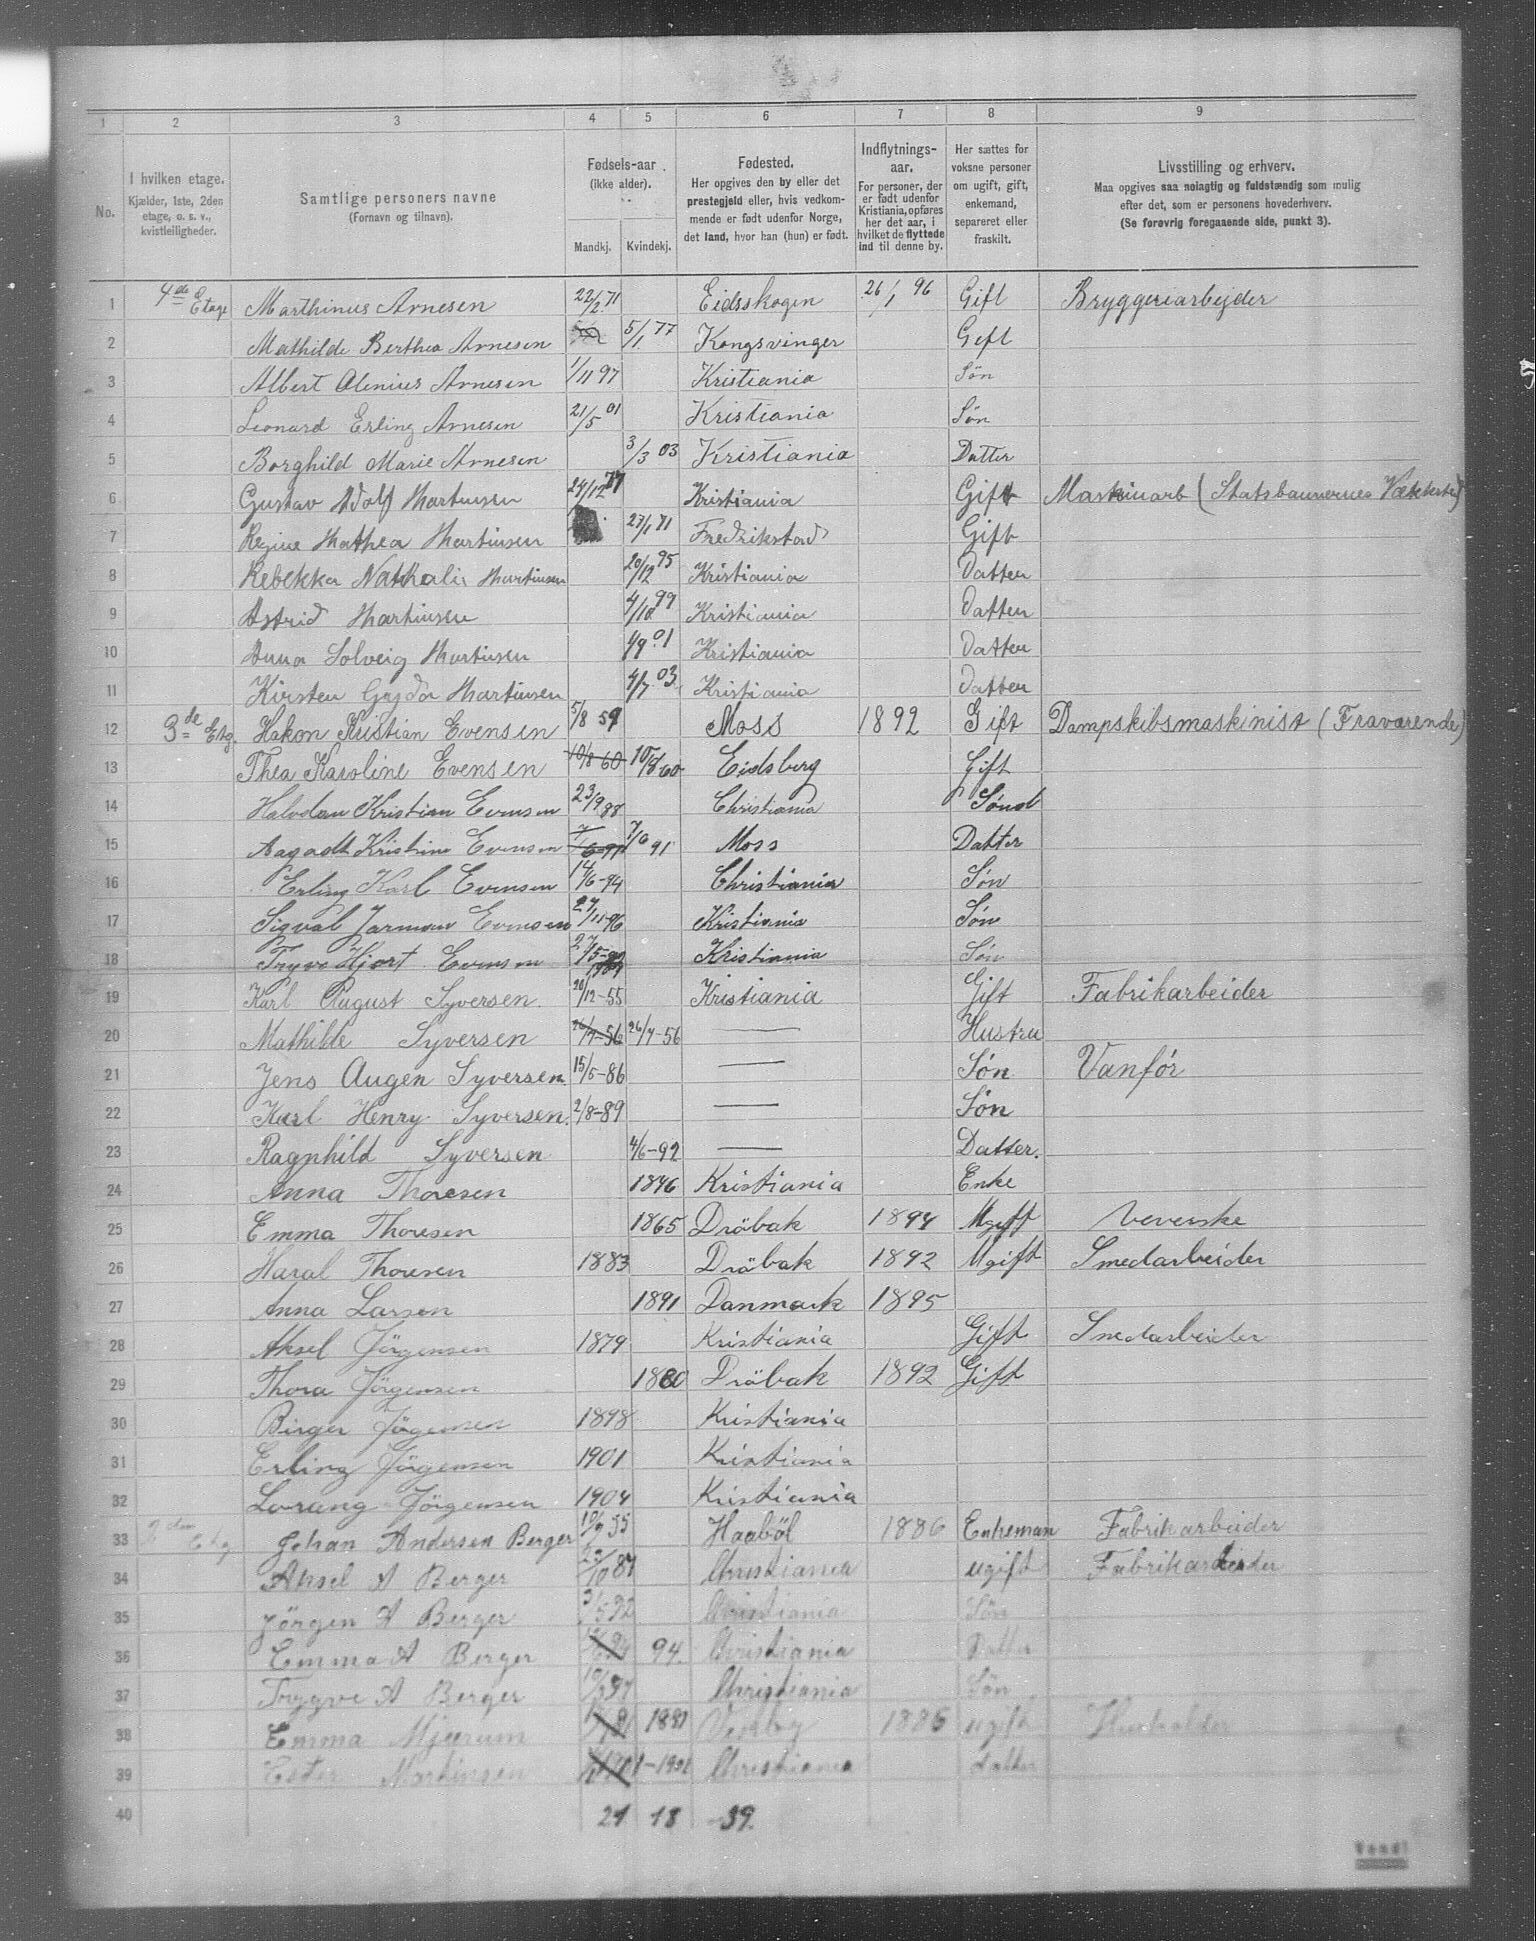 1 2 3 4 5 6 7 8 9
No.
I hvilken etage.
Kjælder, 1ste, 2den
etage, o. s. v.,
kvistleiligheder.
Samtlige personers navne
(Fornavn og tilnavn).
Fødsels-aar
(ikke alder).
Mandkj. Kvindekj.
Fødested.
Her opgives den by eller det
prestegjeld eller, hvis vedkom-
mende er født udenfor Norge,
det land, hvor han (hun) er født.
Indflytnings-
aar.
For personer, der
er født udenfor
Kristiania, opføres
her det aar, i
hvilket de flyttede
ind til denne by.
Her sættes for
voksne personer
om ugift, gift,
enkemand,
separeret eller
fraskilt.
Livsstilling og erhverv.
Maa opgives saa nøiagtig og fuldstændig som mulig
efter det, som er personens hovederhverv.
(Se forøvrig foregaaende side, punkt 3).
1 4de Etage Marthinus Arnesen 22/2 71 Eidsskogen 26/1 96 Gift Bryggeriarbejder
2 Mathilde Berthea Arnesen 5/1 77 Kongsvinger Gift
3 Albert Alenius Arnesen 1/11 97 Kristiania Søn
4 Leonard Erling Arnesen 21/5 01 Kristiania Søn
5 Borghild Marie Arnesen 3/3 03 Kristiania Datter
6 Gustav Adolf Martinsen 24/12 71 Kristiania Gift Maskinarb (Statsbanernes
7 Regine Mathea Martinsen 27/1 71 Fredrikstad Gift
8 Rebekka Nathalie Martinsen 20/12 95 Kristiania Datter
9 Astrid Martinsen 4/10 99 Kristiania Datter
10 Anna Solveig Martinsen 4/9 01 Kristiania Datter
11 Kirsten Gyda Martinsen 4/7 03 Kristiania Datter
12 3de Etg. Hakon Kristian Evensen 5/8 59 Moss 1892 Gift Dampskibsmaskinist (Fraværende)
13 Thea Karoline Evensen 10/8 60 10/8 60 Eidsberg Gift
14 Halvdan Kristian Evensen 23/9 88 Christiania Søn
15 Aagodt Kristine Evensen 7/6 91 7/6 91 Moss Datter
16 Erling Karl Evensen 14/6-94 Christiania Søn
17 Sigval Jarman Evensen 27/11-96 Kristiania Søn
18 Trygve Hjort Evensen Kristiania Søn
19 Karl August Syversen 20/12-55 Kristiania Gift Fabrikarbeider
20 Mathilde Syversen 26/4-56 26/4-56 — Hustru
21 Jens Augen Syversen 15/5-86 — Søn Vanfør
22 Karl Henry Syversen. 2/8-89 — Søn
23 Ragnhild Syversen 4/6-92 — Datter.
24 Anna Thoresen 1846 Kristiania Enke
25 Emma Thoresen 1865 Dröbak 1894 Ugift Veverske
26 Haral Thoresen 1883 Dröbak 1892 Ugift Smedarbeider
27 Anna Larsen 1891 Danmark 1895
28 Aksel Jörgensen 1879 Kristiania Gift Smedarbeider
29 Thora Jörgensen 1880 Dröbak 1892 Gift
30 Birger Jörgensen 1898 Kristiania
31 Erling Jörgensen 1901 Kristiania
32 Lorang Jörgensen 1904 Kristiania
33 2den Etg Johan Andersen Berger 10/9 55 Haaböl 1886 Enkeman Fabrikarbeider
34 Aksel A Berger 22/10 87 Christiania ugift Fabrikarbeider
35 Jörgen A Berger 3/5 92 Christiania Søn
36 Emma A Berger 94. Christiania Datter
37 Trygve A Berger 97 Christiania Søn
38 Emma Mjærum 1881 1886 ugift
39 Ester Martinsen 1901 Christiania datter
40 21 18 -39.
Vend!